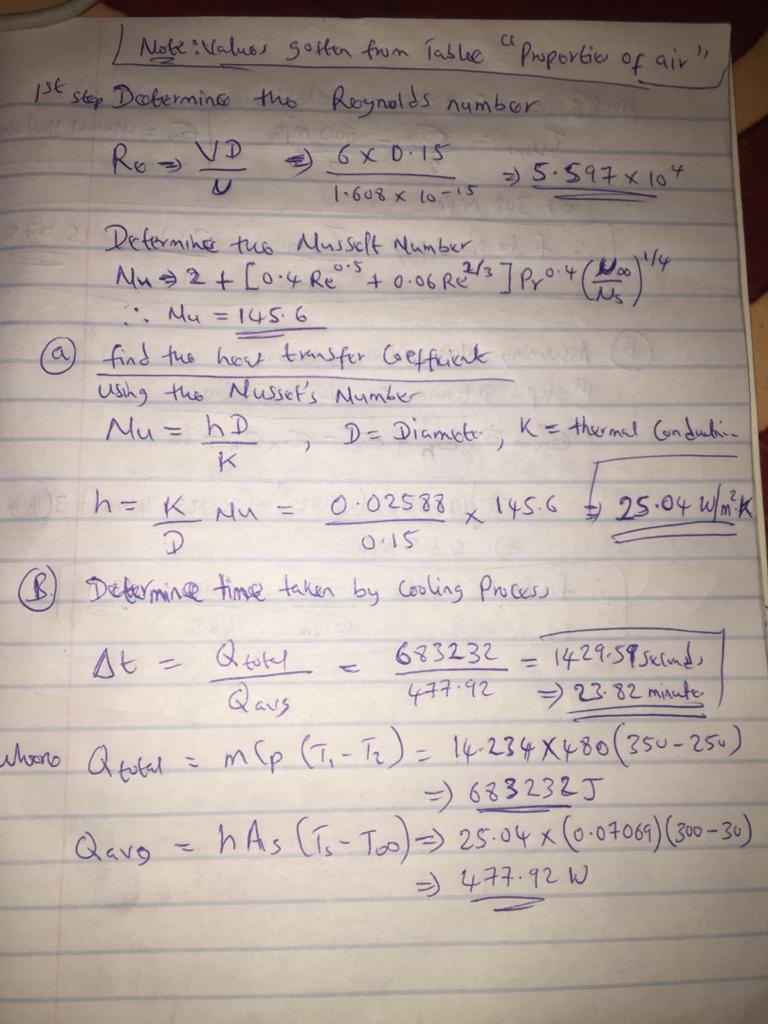 Note: Values gotten from Table "Properties of air"
1st step Determine the Reynolds number
Re ⇒ VD/υ ⇒ 6 × 0.15 / 1.608 × 10^-15 ⇒ 5.597 × 10^4
Determine the Nusselt Number
Nu ⇒ 2 + [0.4 Re^0.5 + 0.06 Re^2/3] Pr^0.4 (μ∞/μs)^1/4
∴ Nu = 145.6
(a) find the heat transfer Coefficient
Using the Nusset's Number
Nu = hD/K , D = Diameter, K = thermal
h = K/D Nu = 0.02588/0.15 × 145.6 ⇒ 25.04 W/m².K
(B.) Determine time taken by Cooling Process
Δt = Qtotal/Qavg = 683232/477.92 = 1429.59 seconds
⇒ 23.82 minute
where Qtotal = mCp (T1 - T2) = 14.234 × 480 (350 - 250)
⇒ 683232 J
Qavg = hAs (Ts - T∞) ⇒ 25.04 × (0.07069)(300 - 30)
⇒ 477.92 W